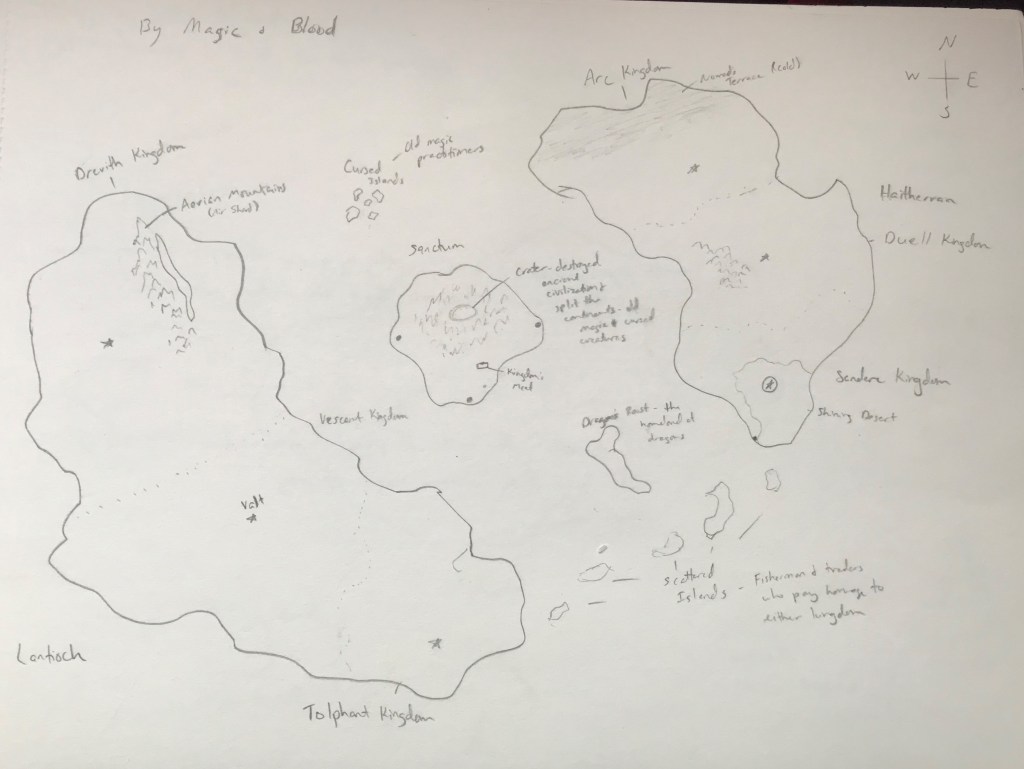 By Magic & Blood
N
W E
S
Arc Kingdom
Nomads
Terrace (cold)
Drevith Kingdom
Aerien Mountains
Cursed
Islands
Old magic
practitioners
Haitherran
Duell Kingdom
Sanctum
Crater - destroyed
ancient
civilization &
split the
continents - old
magic & cursed
creatures
Kingdoms
Meet
Vescent Kingdom
Sendere Kingdom
Shining Desert
Dragons Roost - the
homeland of
dragons
Valt
Scattered
Islands - Fisherman & traders
who pay homage to
either kingdom
Lantioch
Tolphant Kingdom